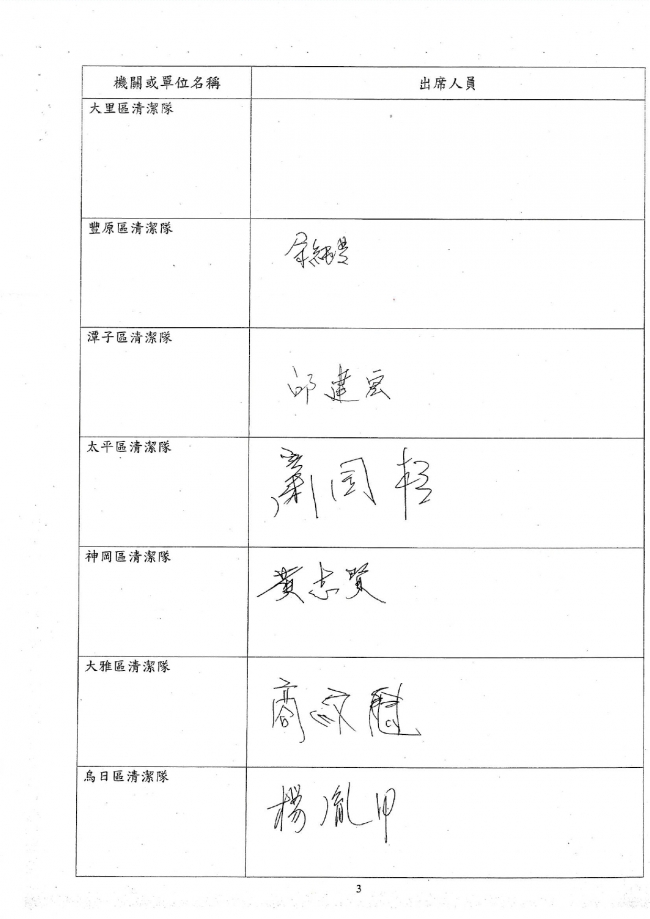 機關或單位名稱 出席人員
大里區清潔隊
豐原區清潔隊
潭子區清潔隊 邱建宏
太平區清潔隊
神岡區清潔隊 黃志賢
大雅區清潔隊
烏日區清潔隊 楊胤甲
3